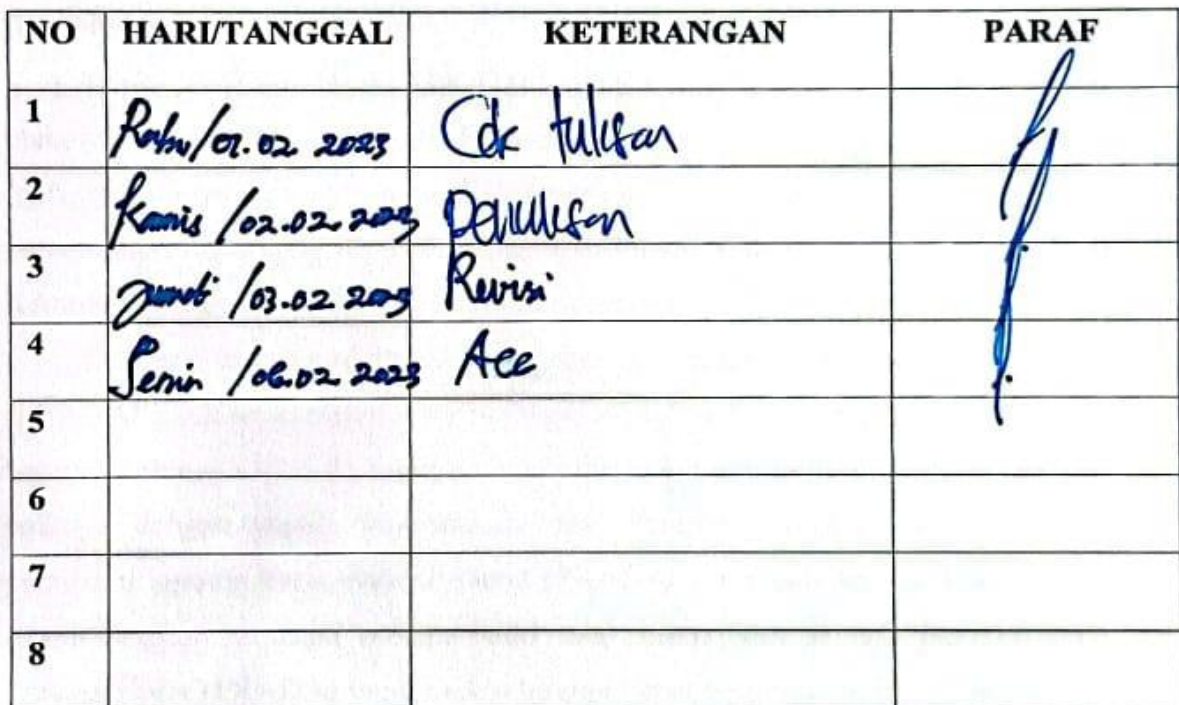 NO HARI/TANGGAL KETERANGAN PARAF
1 Rabu/01.02.2023 Cek tulisan
2 Kamis/02.02.2023 Penulisan
3 Jumat/03.02.2023 Revisi
4 Senin/06.02.2023 Acc
5
6
7
8